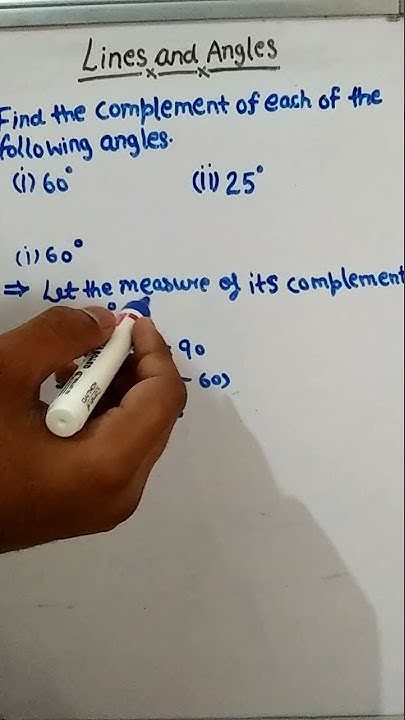 Lines and Angles
Find the complement of each of the
following angles.
(i) 60° (ii) 25°
(i) 60°
⇒ Let the measure of its complement
90
- 60)